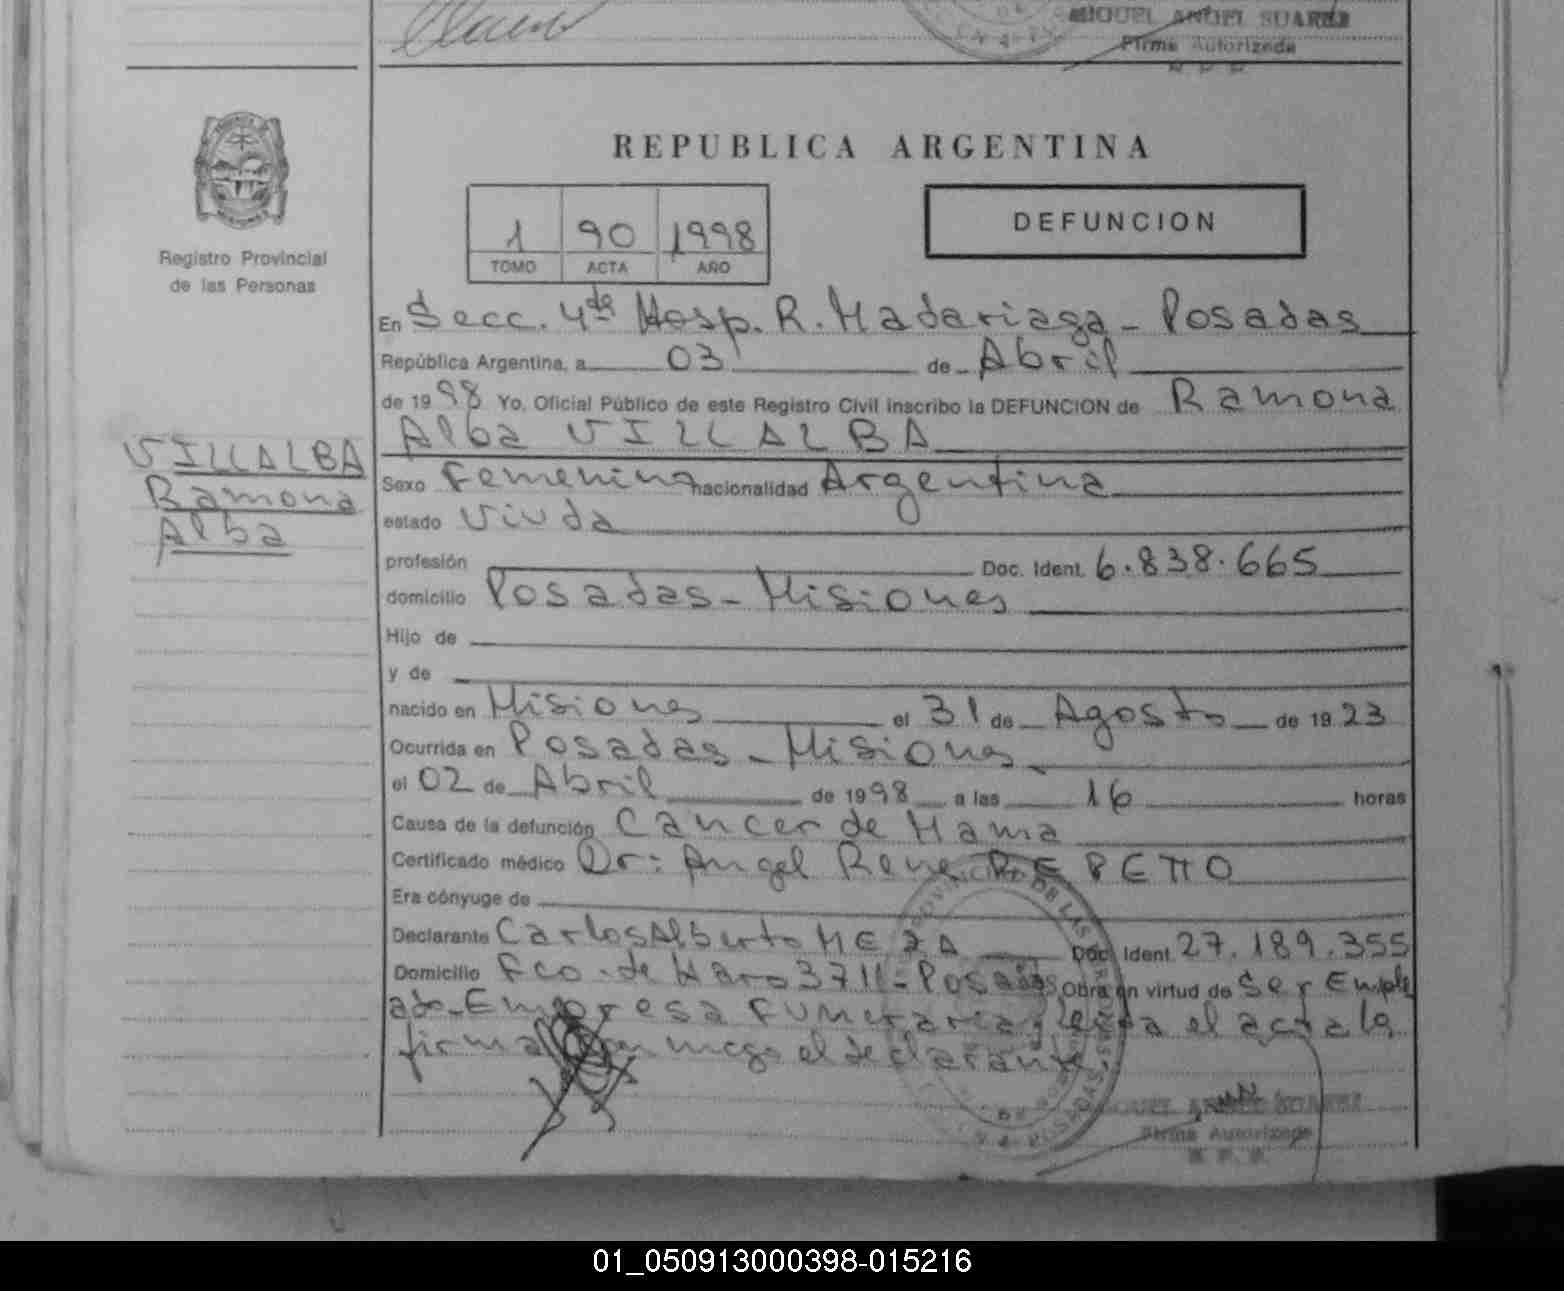 MIGUEL ANGEL SUAREZ
Firma Autorizada
R. P. P.
REPUBLICA ARGENTINA
Registro Provincial
de las Personas
1 90 1998
TOMO ACTA AÑO
DEFUNCION
En Secc. 4ta Hosp. R. Madariaga - Posadas
República Argentina, a 03 de Abril
de 1998 Yo, Oficial Público de este Registro Civil inscribo la DEFUNCION de Ramona
Alba VILLALBA
VILLALBA
Ramona
Alba
Sexo Femenina nacionalidad Argentina
estado Viuda
profesión Doc. Ident. 6.838.665
domicilio Posadas - Misiones
Hijo de
y de
nacido en Misiones el 31 de Agosto de 1923
Ocurrida en Posadas - Misiones
el 02 de Abril de 1998 a las 16 horas
Causa de la defunción Cancer de Mama
Certificado médico Dr: Angel Rene REPETTO
Era cónyuge de
Declarante Carlos Alberto MEZA Doc. Ident. 27.189.355
Domicilio Fco. de Haro 3711 - Posadas Obra en virtud de Ser Emple
ado - Empresa Funeraria; leida el acta la
firma el declarante
MIGUEL ANGEL SUAREZ
Firma Autorizada
R. P. P.
01_050913000398-015216